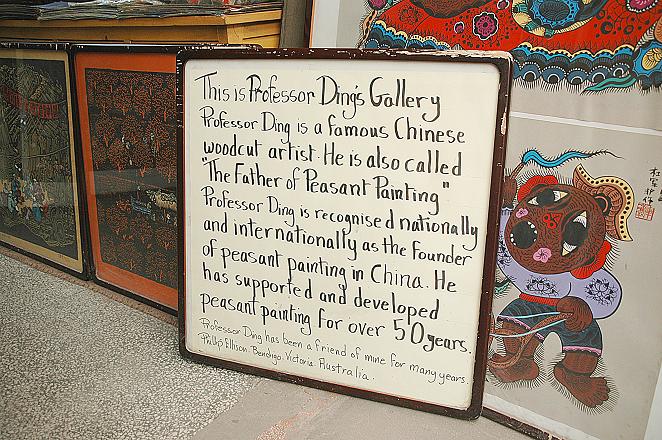 This is Professor Ding's Gallery
Professor Ding is a famous Chinese
woodcut artist. He is also called
"The Father of Peasant Painting"
Professor Ding is recognised nationally
and internationally as the founder
of peasant painting in China. He
has supported and developed
peasant painting for over 50 years.
Professor Ding has been a friend of mine for many years.
Phillip Ellison. Bendigo. Victoria. Australia.